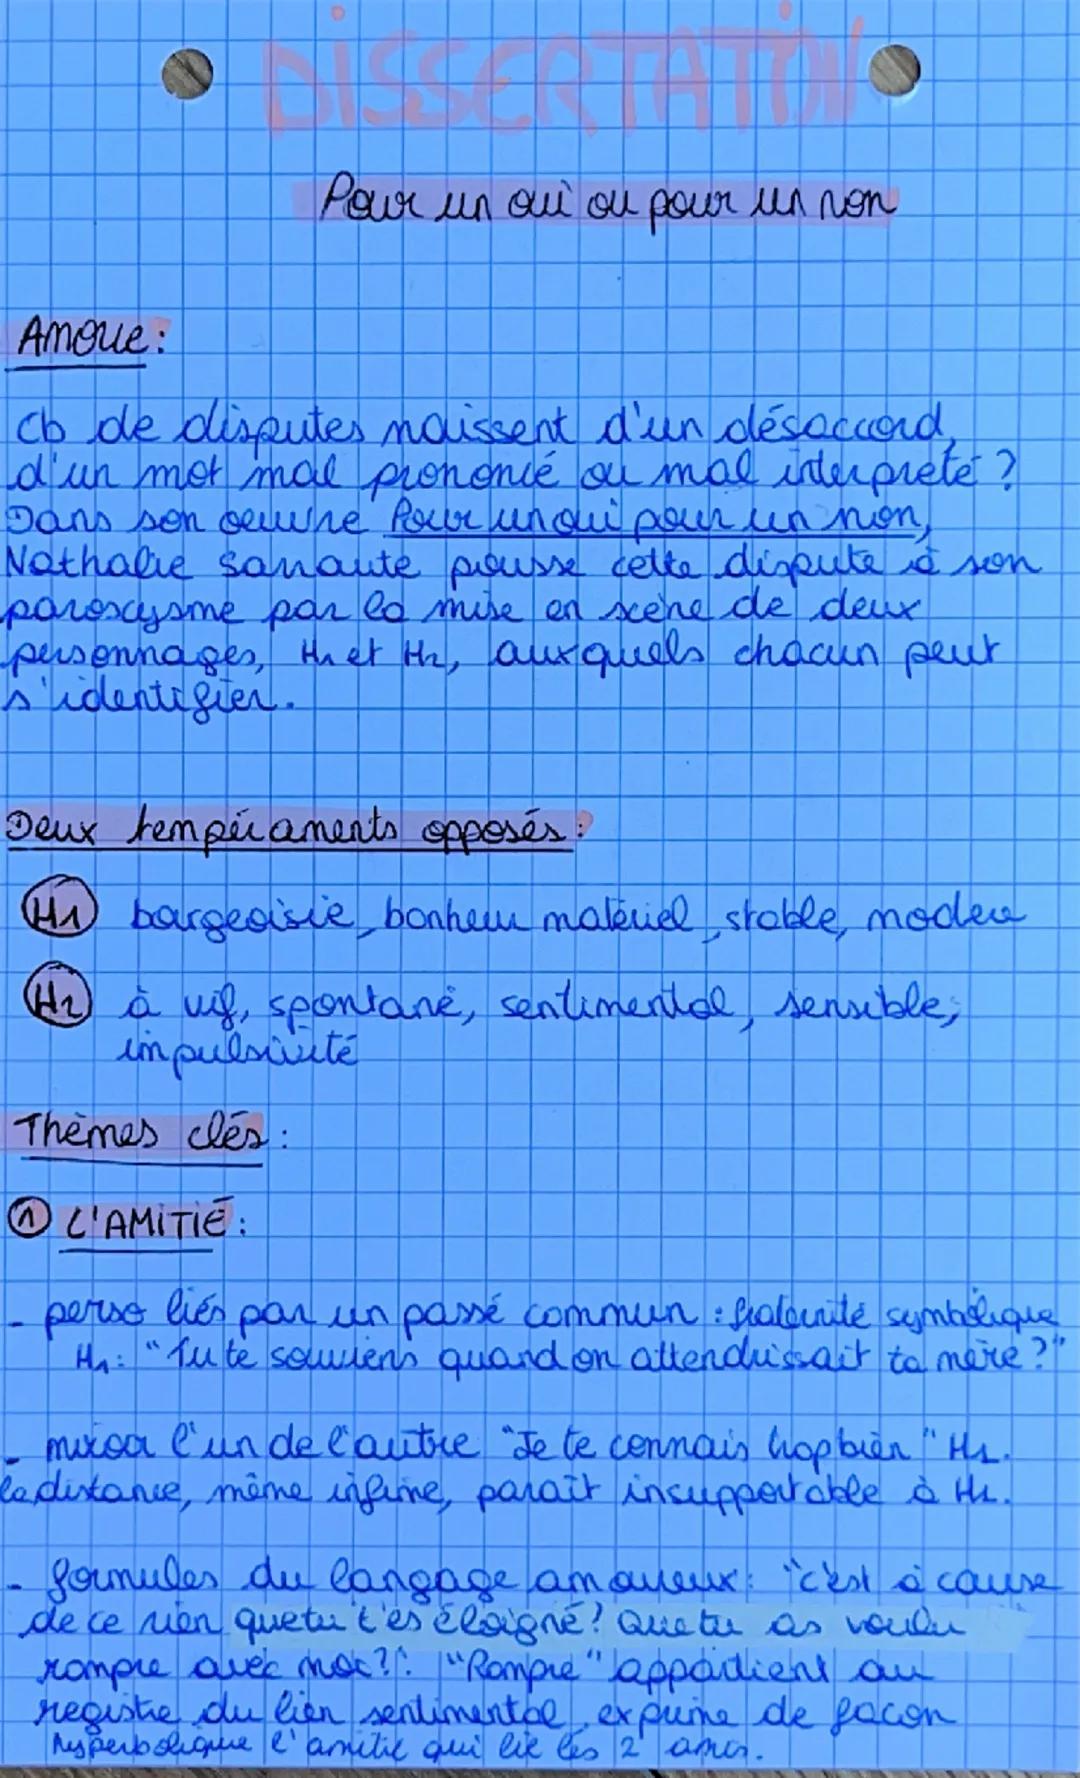 DISSERTATION
Pour un oui ou pour un non
Amorce:
Cb de disputes naissent d'un désaccord,
d'un mot mal prononcé ou mal interprété ?
Dans son oeuvre Pour un oui pour un non,
Nathalie Sarraute pousse cette dispute à son
paroxysme par la mise en scène de deux
personnages, H1 et H2, auxquels chacun peut
s'identifier.
Deux tempéraments opposés:
H1 bourgeoisie, bonheur matériel, stable, modéré
H2 à vif, spontané, sentimental, sensible,
impulsivité
Thèmes clés:
① L'AMITIÉ:
- perso liés par un passé commun : fraternité symbolique
H1: "Tu te souviens quand on attendrissait ta mère ?"
- miroir l'un de l'autre "Je te connais trop bien" H1.
la distance, même infime, paraît insupportable à H2.
- formules du langage amoureux: "c'est à cause
de ce rien que tu t'es éloigné? Que tu as voulu
rompre avec moi?". "Rompre" appartient au
registre du lien sentimental, exprime de façon
hyperbolique l'amitié qui lie les 2 amis.